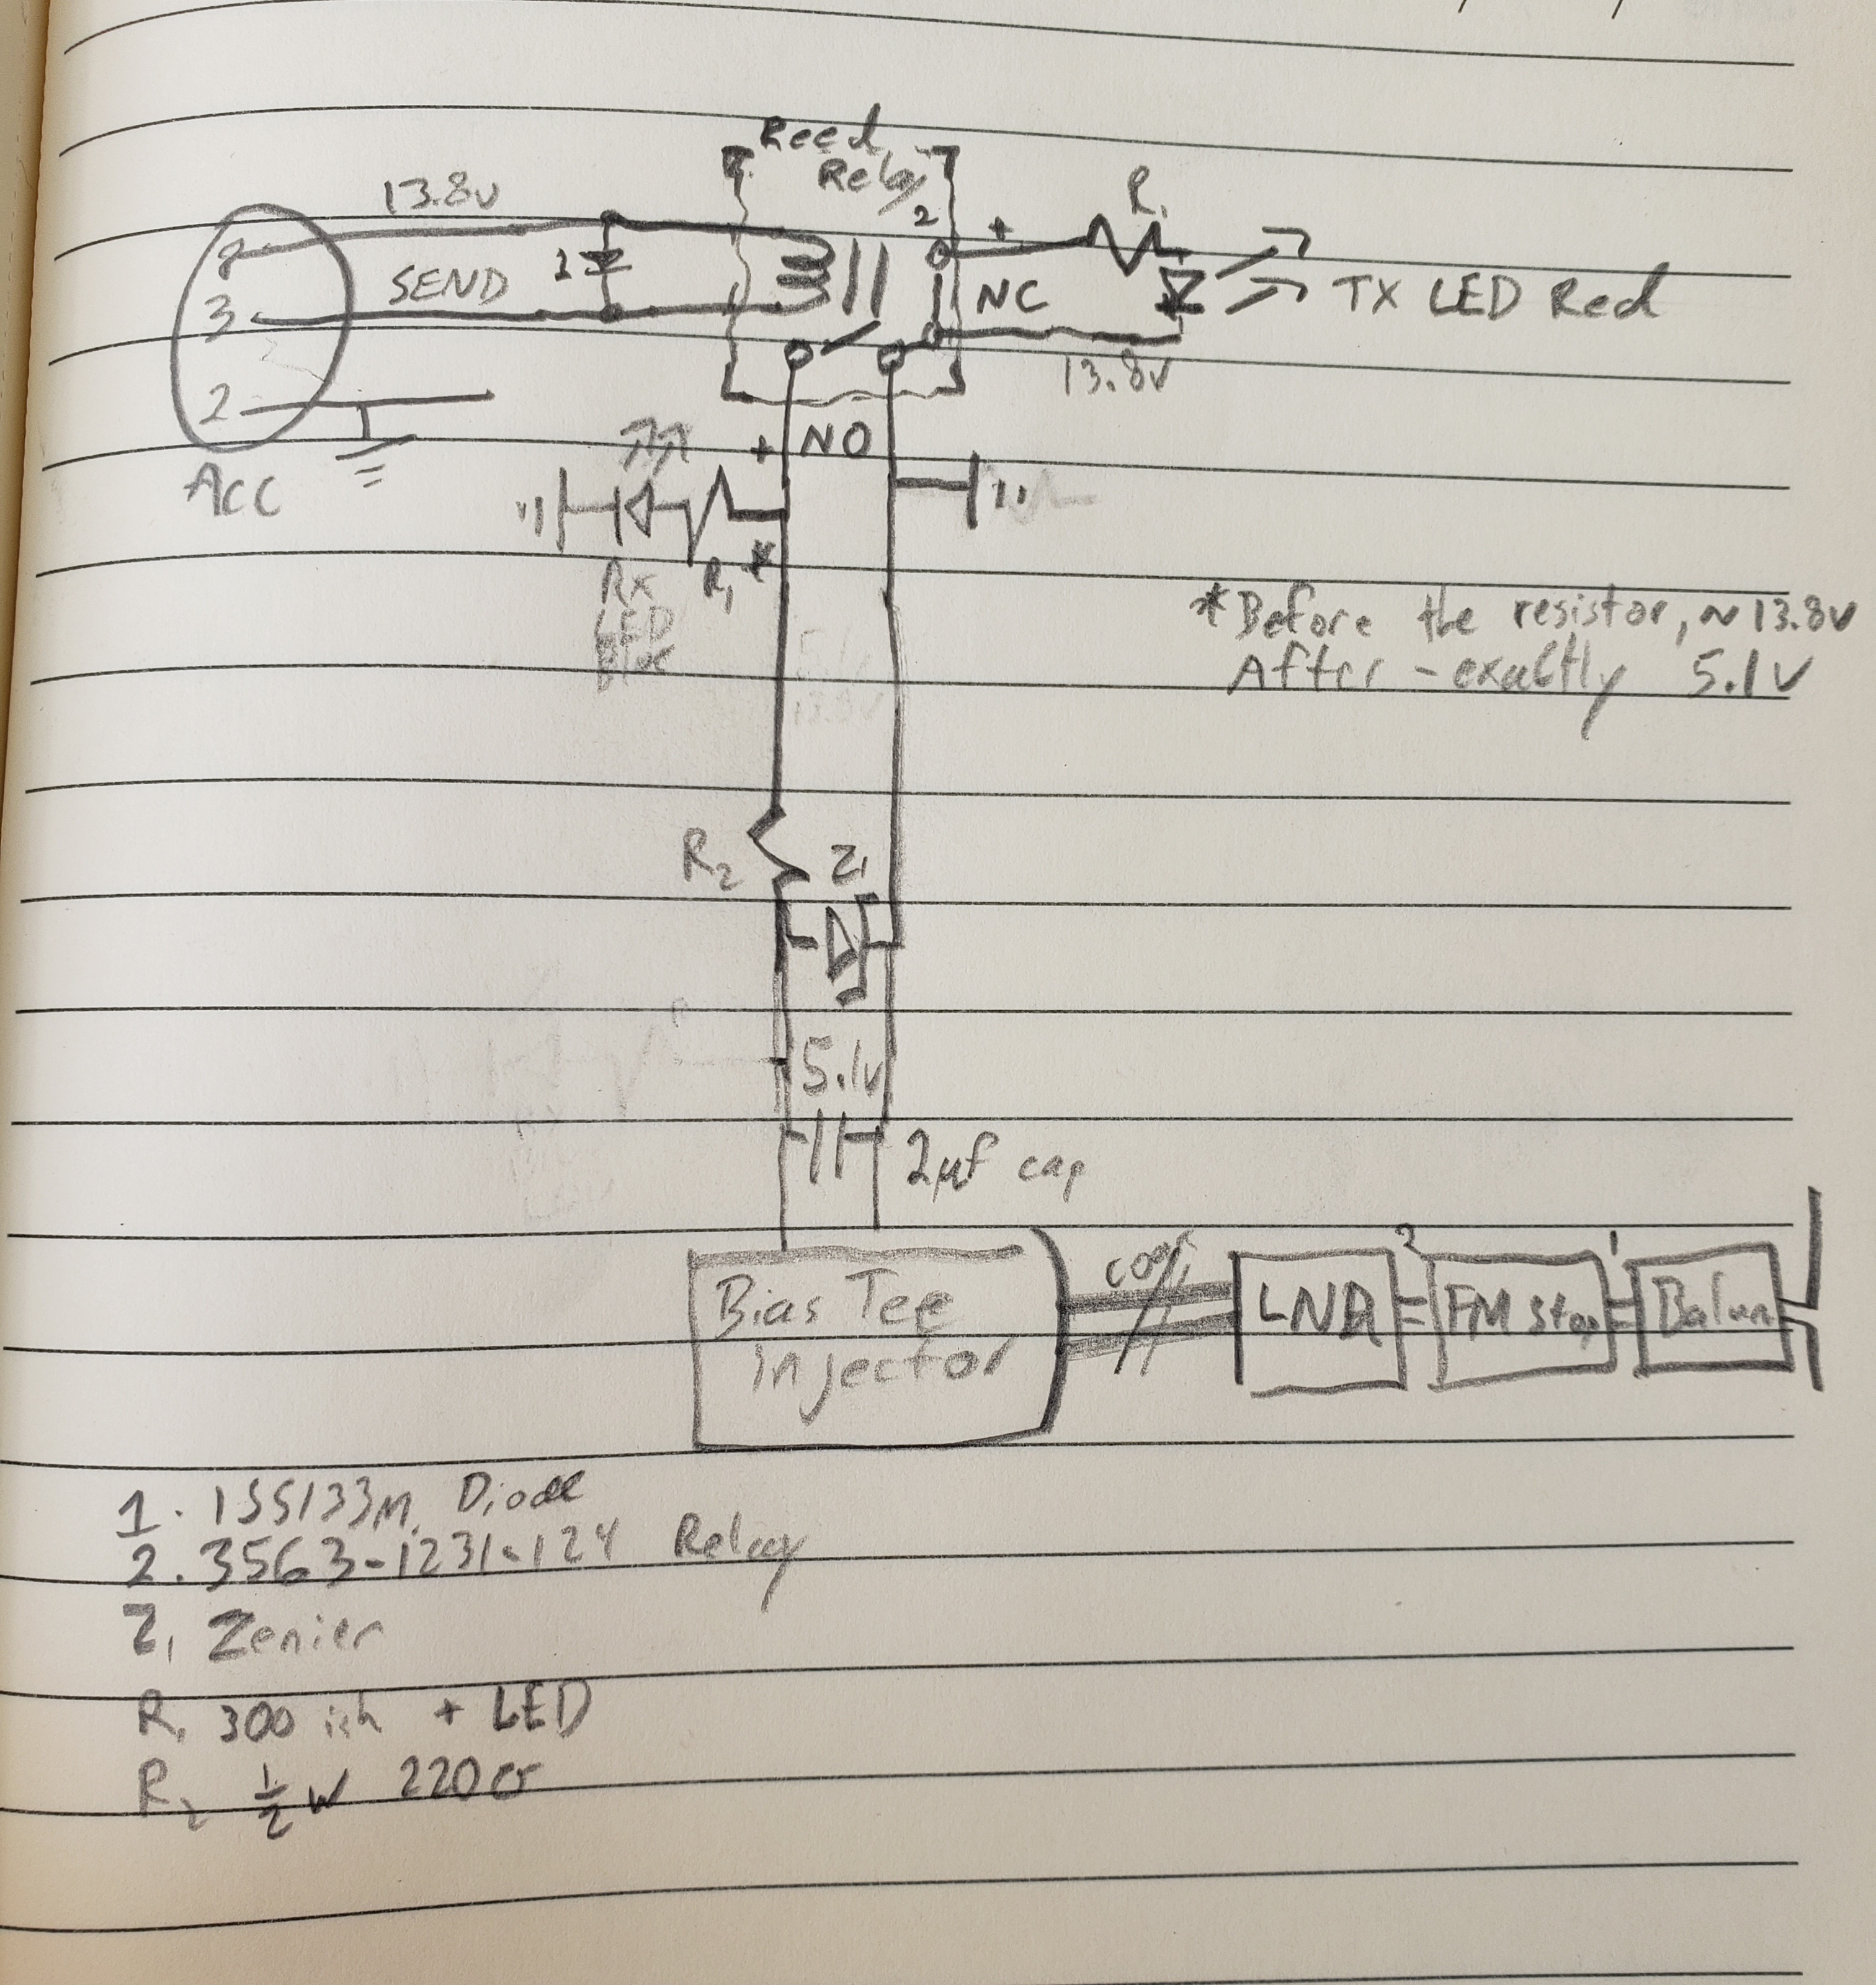 Reed
Relay
2
13.8v
R1
8
1
SEND
+
NC
TX LED Red
3
13.8v
2
ACC
+
NO
R1 *
Rx
LED
*Before the resistor, ~13.8v
After - exactly 5.1v
R2
Z1
5.1v
2µf cap
coax
2
1
Bias Tee
injector
LNA
FM stop
Balun
1. 1SS133M Diode
2. 3563-1231-124 Relay
Z1 Zenier
R1 300 ish + LED
R2 ½ W 220